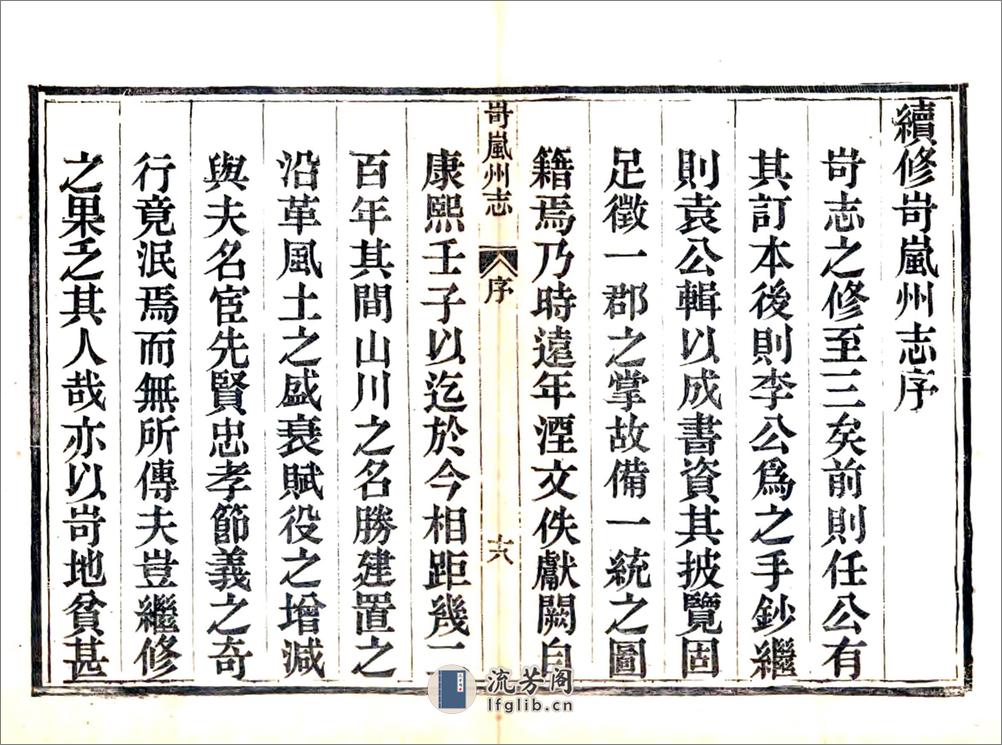 續修岢嵐州志序
岢志之修至三矣前則任公有
其訂本後則李公爲之手鈔繼
則袁公輯以成書資其披覽固
足徵一郡之掌故備一統之圖
籍焉乃時遠年湮文佚獻闕自
岢嵐州志
序
十六
康熙壬子以迄於今相距幾一
百年其間山川之名勝建置之
沿革風土之盛衰賦役之增減
與夫名宦先賢忠孝節義之奇
行竟泯焉而無所傳夫豈繼修
之果乏其人哉亦以岢地貧甚
流芳阁
lfglib.cn